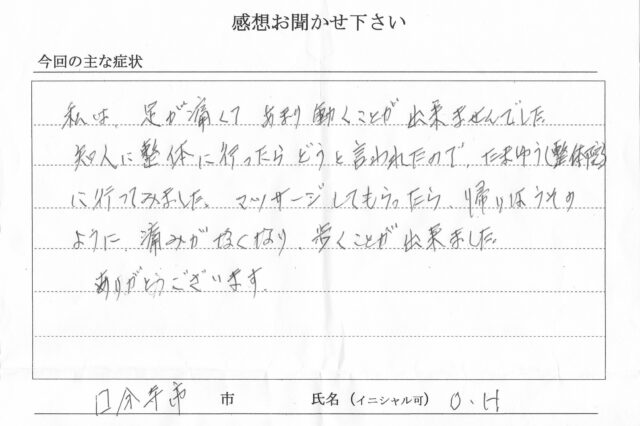 感想お聞かせ下さい
今回の主な症状
私は、足が痛くてあまり働くことが出来ませんでした
知人に整体に行ったらどうと言われたので、たまゆう(整体院)
に行ってみました。マッサージしてもらったら、帰りはうその
ように、痛みがなくなり、歩くことが出来ました
ありがとうございます。
市 市 氏名(イニシャル可) O.H